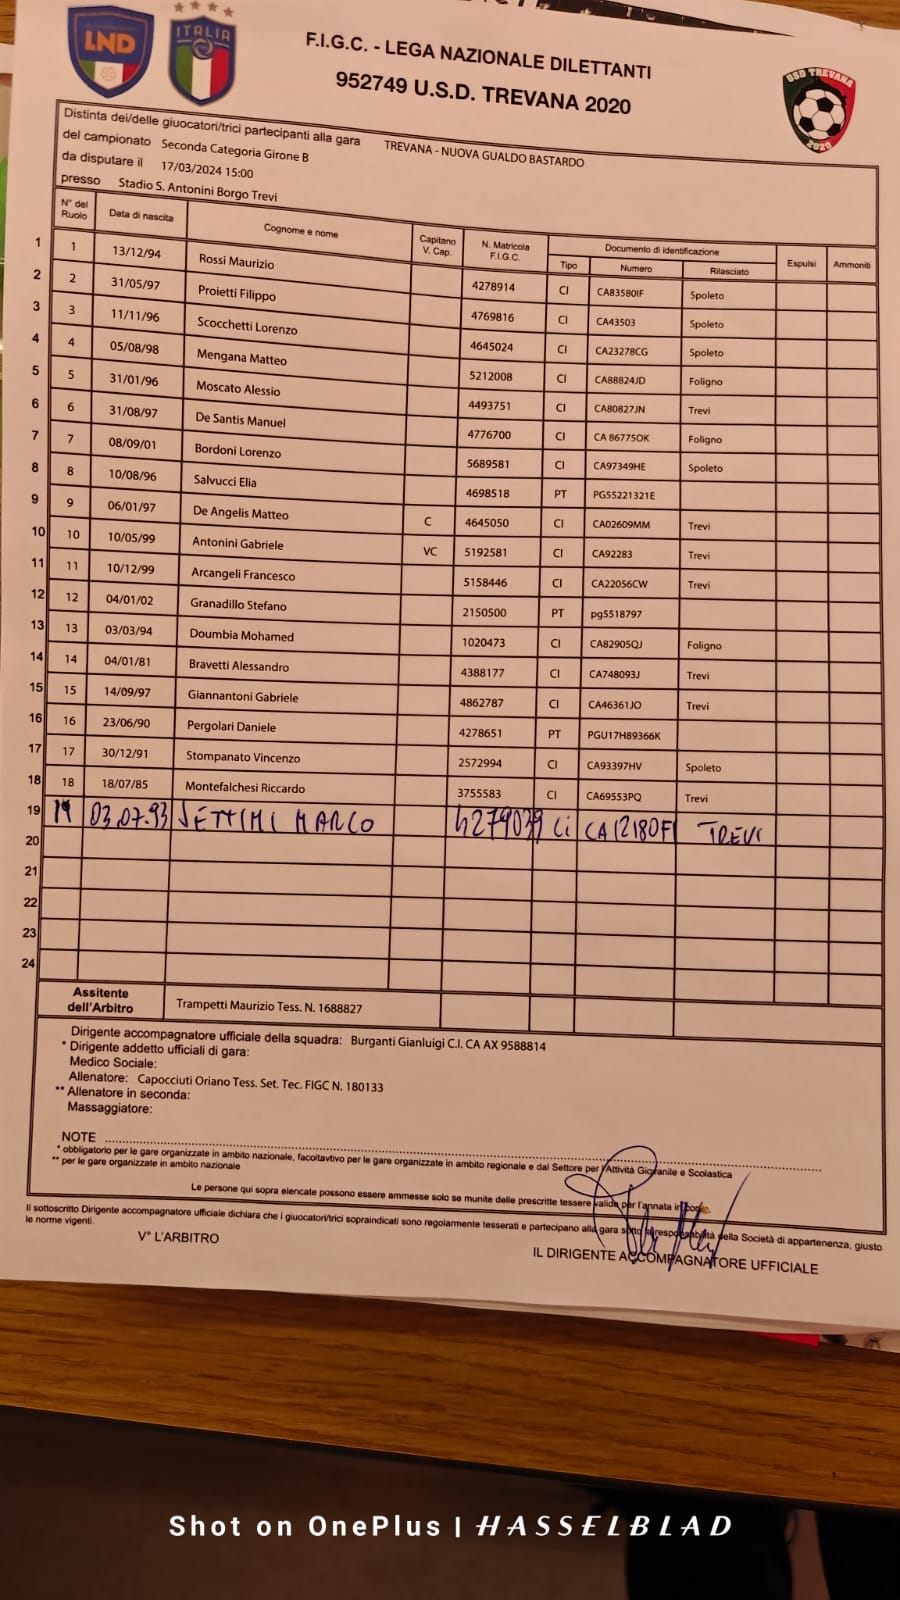 LND
ITALIA
F.I.G.C. - LEGA NAZIONALE DILETTANTI
952749 U.S.D. TREVANA 2020
USD TREVANA
2020
Distinta dei/delle giuocatori/trici partecipanti alla gara TREVANA - NUOVA GUALDO BASTARDO
del campionato Seconda Categoria Girone B
da disputare il 17/03/2024 15:00
presso Stadio S. Antonini Borgo Trevi
N° del Ruolo Data di nascita Cognome e nome Capitano V. Cap. N. Matricola F.I.G.C. Documento di identificazione Espulsi Ammoniti
Tipo Numero Rilasciato
1 1 13/12/94 Rossi Maurizio 4278914 CI CA83580IF Spoleto
2 2 31/05/97 Proietti Filippo 4769816 CI CA43503 Spoleto
3 3 11/11/96 Scocchetti Lorenzo 4645024 CI CA23278CG Spoleto
4 4 05/08/98 Mengana Matteo 5212008 CI CA88824JD Foligno
5 5 31/01/96 Moscato Alessio 4493751 CI CA80827JN Trevi
6 6 31/08/97 De Santis Manuel 4776700 CI CA 86775OK Foligno
7 7 08/09/01 Bordoni Lorenzo 5689581 CI CA97349HE Spoleto
8 8 10/08/96 Salvucci Elia 4698518 PT PG55221321E
9 9 06/01/97 De Angelis Matteo C 4645050 CI CA02609MM Trevi
10 10 10/05/99 Antonini Gabriele VC 5192581 CI CA92283 Trevi
11 11 10/12/99 Arcangeli Francesco 5158446 CI CA22056CW Trevi
12 12 04/01/02 Granadillo Stefano 2150500 PT pg5518797
13 13 03/03/94 Doumbia Mohamed 1020473 CI CA82905QJ Foligno
14 14 04/01/81 Bravetti Alessandro 4388177 CI CA748093J Trevi
15 15 14/09/97 Giannantoni Gabriele 4862787 CI CA46361JO Trevi
16 16 23/06/90 Pergolari Daniele 4278651 PT PGU17H89366K
17 17 30/12/91 Stompanato Vincenzo 2572994 CI CA93397HV Spoleto
18 18 18/07/85 Montefalchesi Riccardo 3755583 CI CA69553PQ Trevi
19 19 03.07.93 SETTIMI MARCO 4279039 Ci CA12180FI TREVI
20
21
22
23
24
Assitente dell'Arbitro Trampetti Maurizio Tess. N. 1688827
Dirigente accompagnatore ufficiale della squadra: Burganti Gianluigi C.I. CA AX 9588814
* Dirigente addetto ufficiali di gara:
Medico Sociale:
Allenatore: Capocciuti Oriano Tess. Set. Tec. FIGC N. 180133
** Allenatore in seconda:
Massaggiatore:
NOTE
* obbligatorio per le gare organizzate in ambito nazionale, facoltavtivo per le gare organizzate in ambito regionale e dal Settore per l'Attività Giovanile e Scolastica
** per le gare organizzate in ambito nazionale
Le persone qui sopra elencate possono essere ammesse solo se munite delle prescritte tessere valide per l'annata in corso.
Il sottoscritto Dirigente accompagnatore ufficiale dichiara che i giuocatori/trici sopraindicati sono regolarmente tesserati e partecipano alla gara sotto la responsabilità della Società di appartenenza, giusto
le norme vigenti.
V° L'ARBITRO
IL DIRIGENTE ACCOMPAGNATORE UFFICIALE
Shot on OnePlus | HASSELBLAD